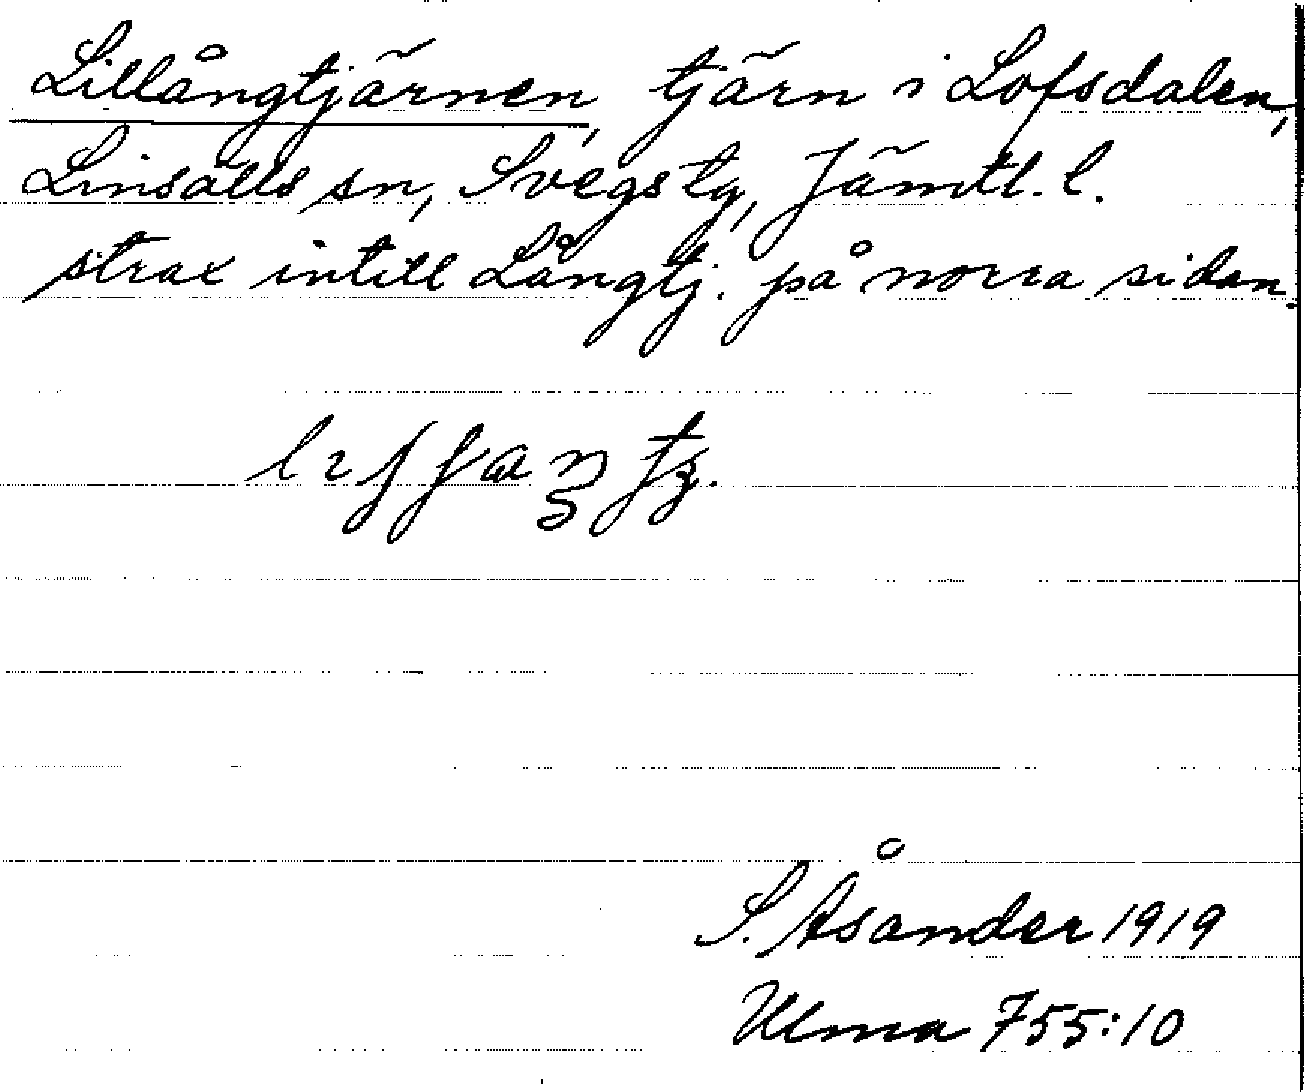 Lillångtjärnen, tjärn i Lofsdalen,
Linsälls sn, Svegs tg, Jämtl. l.
strax intill Långtj. på norra sidan.
S. Åsander 1919
Ulma 755:10